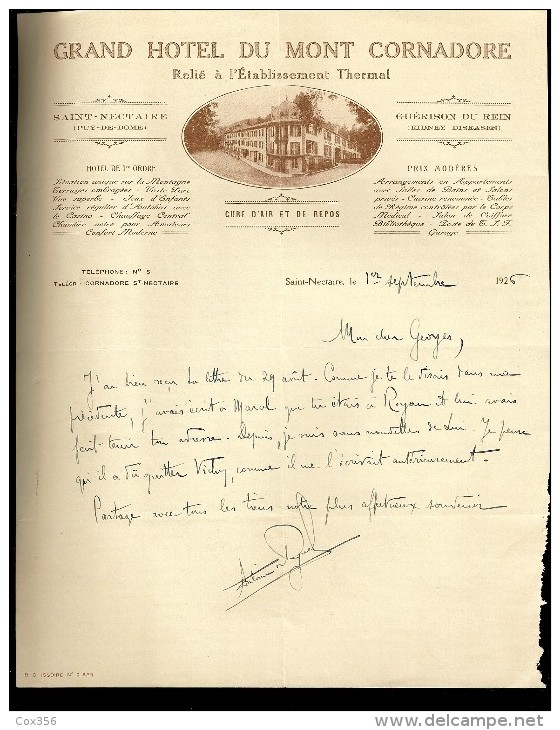 GRAND HOTEL DU MONT CORNADORE
Relié à l'Établissement Thermal
SAINT-NECTAIRE
(PUY-DE-DÔME)
GUÉRISON DU REIN
(KIDNEY DISEASES)
HOTEL DE 1er ORDRE
Situation unique sur la Montagne
Terrasses ombragées - Vaste Parc
Vue superbe - Jeux d'Enfants
Service régulier d'Autobus avec
le Casino - Chauffage Central
Chambre noire pour Amateurs
Confort Moderne
PRIX MODÉRÉS
Arrangements en Appartements
avec Salles de Bains et Salons
privés - Cuisine renommée - Tables
de Régime contrôlées par le Corps
Médical - Salon de Coiffure
Bibliothèque - Poste de T. S. F.
Garage
CURE D'AIR ET DE REPOS
TÉLÉPHONE : N° 5
TÉLÉGR : CORNADORE ST NECTAIRE
Saint-Nectaire, le 1er septembre 1926
Mon cher Georges,
J'ai bien reçu ta lettre du 29 août. Comme je te le disais dans ma
précédente, j'avais écrit à Marol que tu étais à Royan et lui avais
fait tenir ton adresse. Depuis, je suis sans nouvelles de lui. Je pense
qu'il a dû quitter Vichy, comme il me l'écrivait antérieurement.
Partage avec tous les tiens notre plus affectueux souvenir
R. G. ISSOIRE N°
Cox356
www.delcampe.net